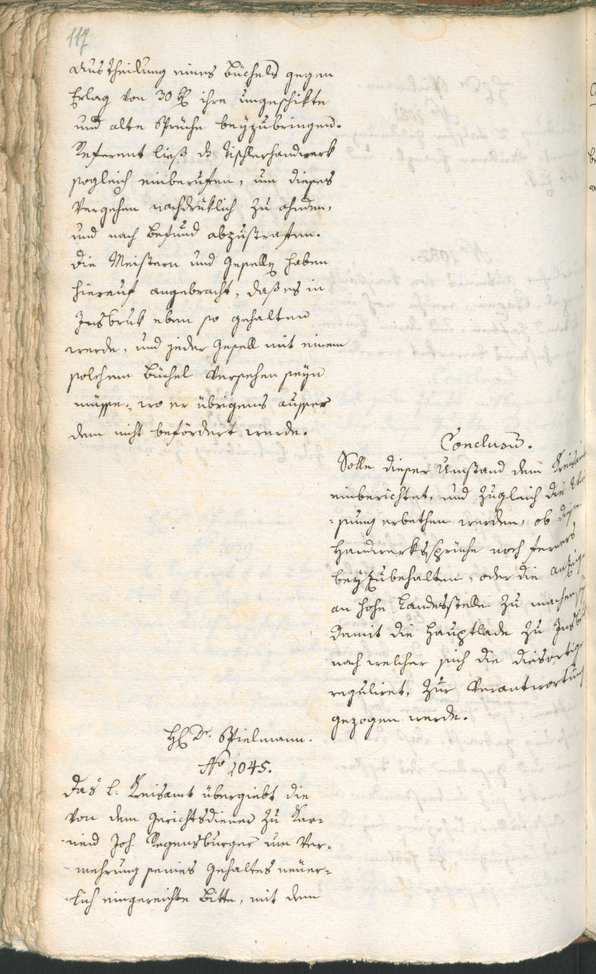 117
Austheilung eines Büchels gegen
Erlag von 30 x ihre ungeschikte
und alte Sprüche beyzubringen.
Referent ließ das Tischlerhandwerk
sogleich einberufen, um dieses
Vergehen nachdrüklich zu ahnden,
und nach Befund abzustrafen.
Die Meistern und Gesellen haben
hierauf angebracht, daß es in
Insbruk eben so gehalten
werde, und jeder Gesell mit einem
solchem Büchel versehen seyn
müsse, wo er übrigens ausser
dem nicht befördert werde.
Conclusum.
Solle dieser Umstand dem Kreisamt
einberichtet, und zugleich die
erbethen werden, ob diese
Handwerkssprüche noch ferners
beyzubehalten, oder die Anzeige
an hohe Landesstelle zu machen sey
damit die Hauptlade zu Insbruk
nach welcher sich die diesortige
reguliret, zur Verantwortung
gezogen werde.
H Dr. Spielmann.
No 1045.
Das l. Kreisamt übergiebt die
von dem Gerichtsdiener zu Kar=
neid Joh. Regensburger um Ver=
mehrung seines Gehaltes neuer=
lich eingereichte Bitte, mit dem